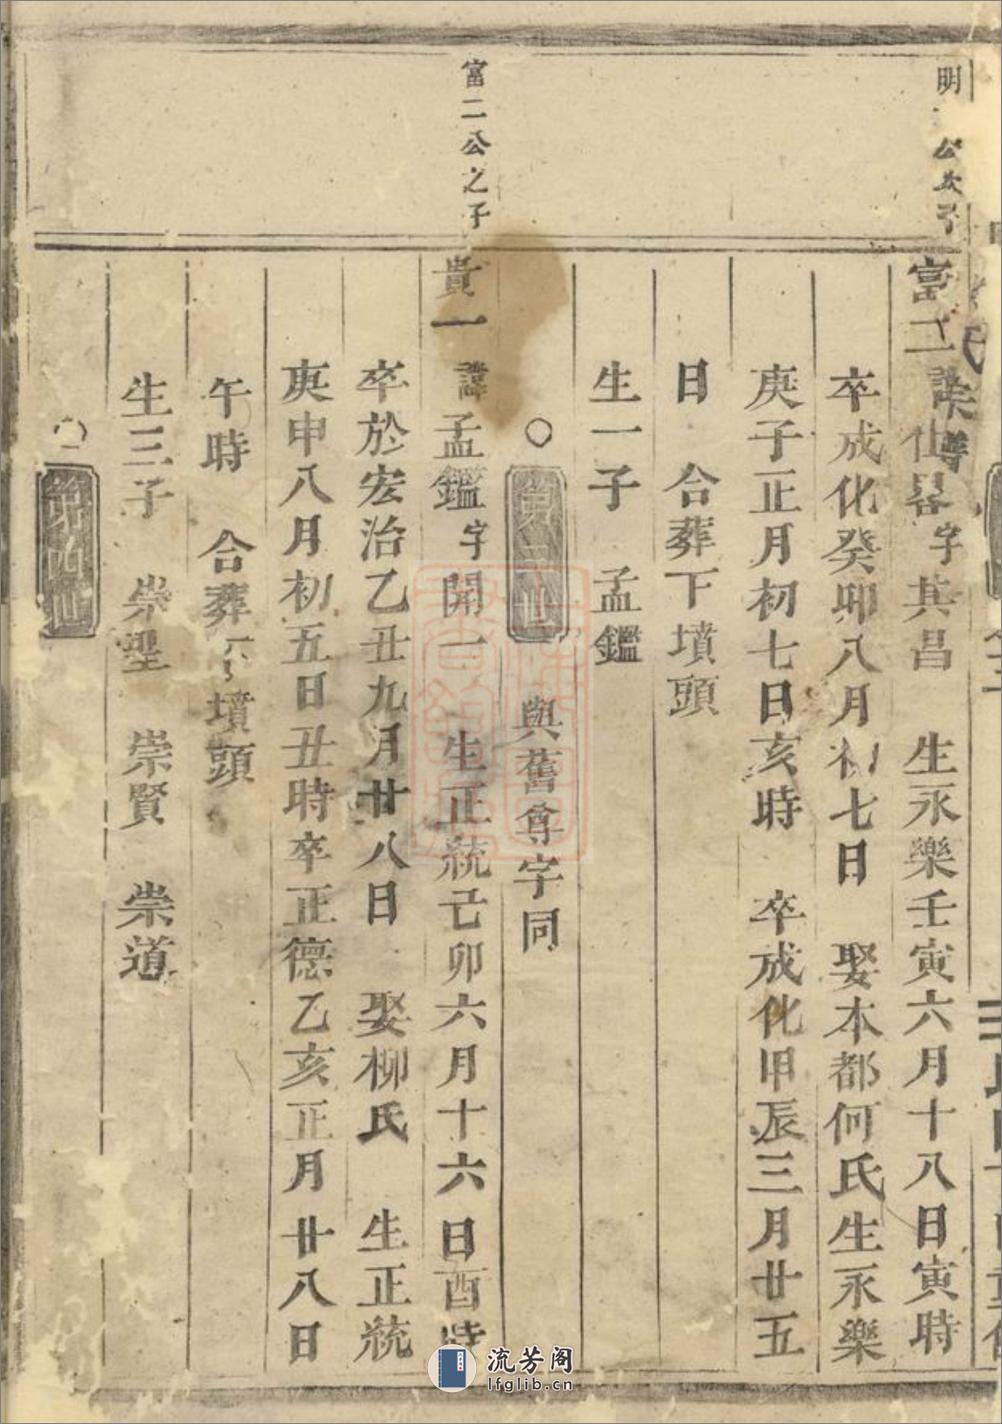 明 公次子
富二 諱仕 字其昌 生永樂壬寅六月十八日寅時
卒成化癸卯八月初七日 娶本都何氏生永樂
庚子正月初七日亥時 卒成化甲辰三月廿五
日 合葬下墳頭
生一子 孟鑑
第三世 與舊尊字同
富二公之子
貴一 諱孟鑑字開一 生正統己卯六月十六日酉時
卒於宏治乙丑九月廿八日 娶柳氏 生正統
庚申八月初五日丑時卒正德乙亥正月廿八日
午時 合葬下墳頭
生三子 崇聖 崇賢 崇道
第四世
流芳阁
lfglib.cn